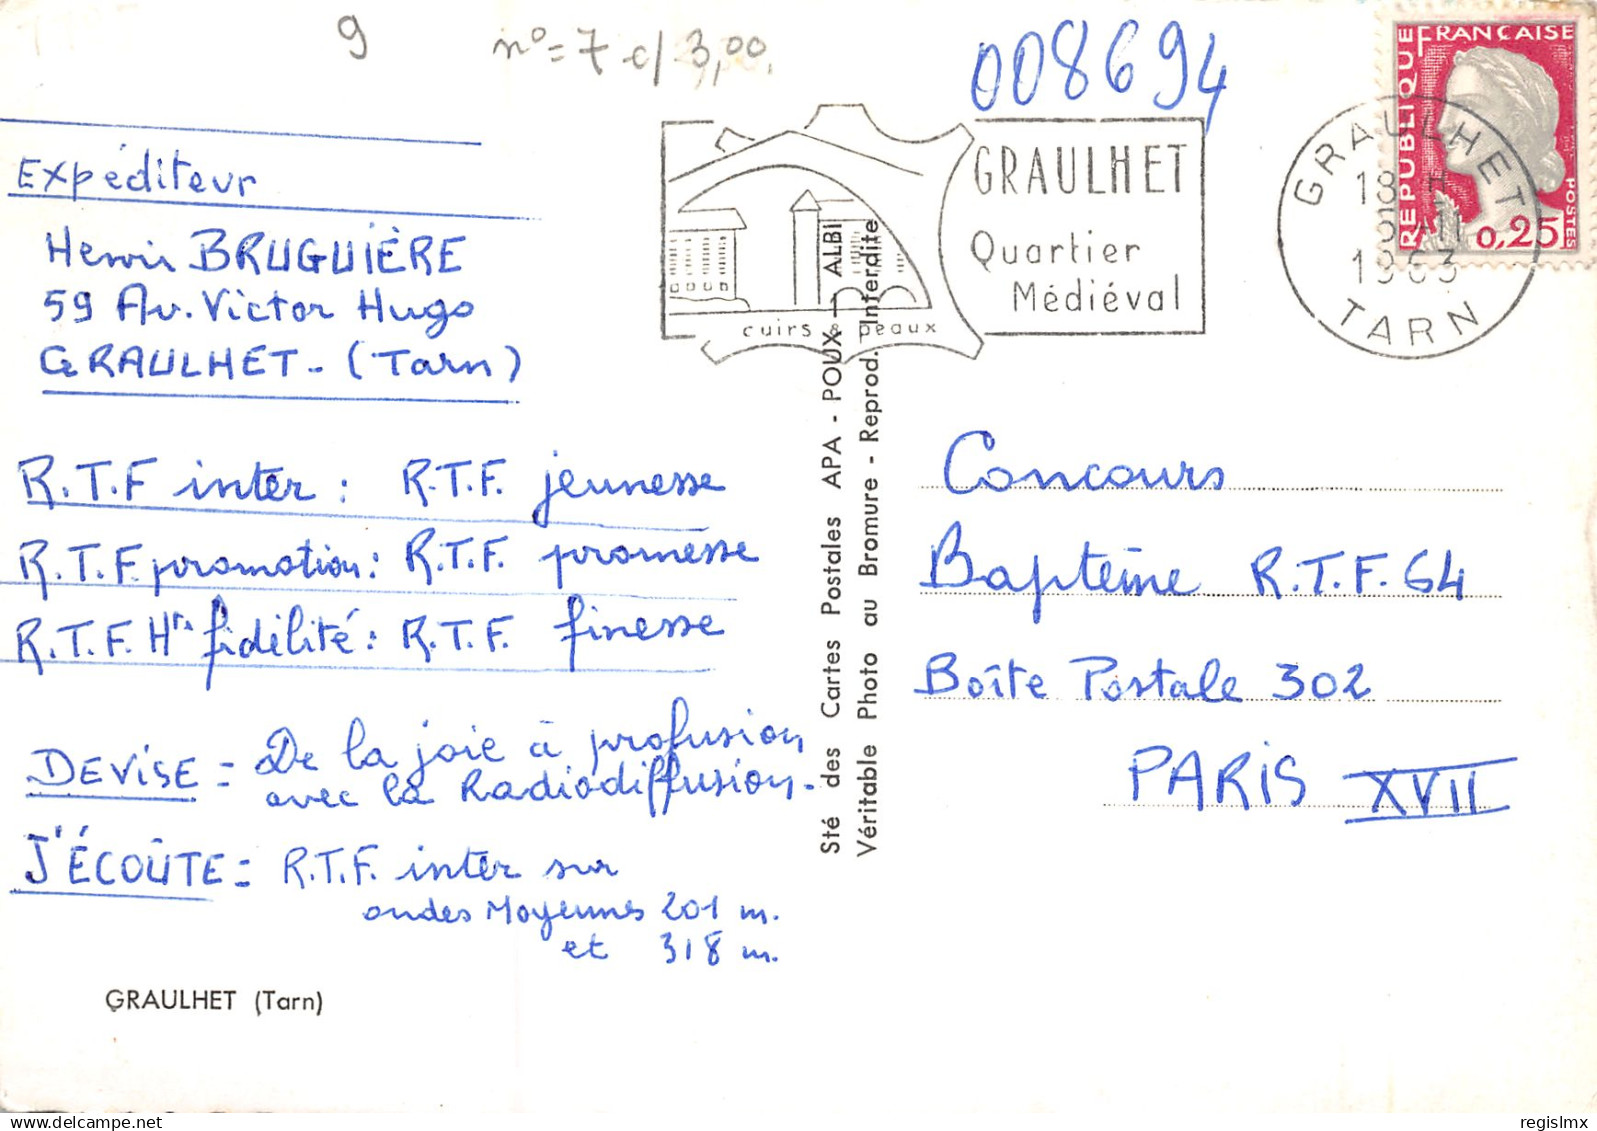 9
n°=7 c/ 3,00.
008694
RÉPUBLIQUE FRANÇAISE
POSTES
0,25
GRAULHET
18 H
1963
TARN
GRAULHET
Quartier
Médiéval
cuirs & peaux
Expéditeur
Henri BRUGUIÈRE
59 Av. Victor Hugo
GRAULHET - (Tarn)
R.T.F inter : R.T.F. jeunesse
R.T.F. promotion : R.T.F. promesse
R.T.F. Hte fidélité : R.T.F. finesse
DEVISE = De la joie à profusion
avec la Radiodiffusion.
J'ÉCOUTE = R.T.F. inter sur
ondes Moyennes 201 m.
et 318 m.
GRAULHET (Tarn)
Sté des Cartes Postales APA - POUX - ALBI
Véritable Photo au Bromure - Reprod. Interdite
Concours
Baptême R.T.F. 64
Boîte Postale 302
PARIS XVII
regislmx